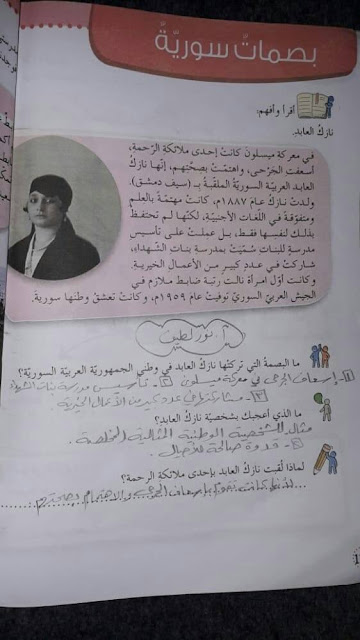 بصماتٌ سوريّةٌ
أقرأ وأفهم:
نازكُ العابد.
في معركة ميسلونَ كانتْ إحدى ملائكة الرّحمةِ،
أسعفت الجَرْحى، واهتمّتْ بصحّتِهم، إنّها نازكُ
العابد العربيّة السوريّة الملقّبة بـ (سيف دمشق).
ولدتْ نازكُ عامَ ١٨٨٧م، وكانتْ مهتمّة بالعلم
ومتفوّقة في اللغات الأجنبيّة، لكنّها لم تحتفظْ
بذلك لنفسِها فقط، بل عملتْ على تأسيس
مدرسةٍ للبنات سُمّيَتْ بمدرسةِ بناتِ الشّهداءِ،
شاركتْ في عددٍ كبيرٍ من الأعمال الخيرية.
وكانتْ أوّل امرأة نالت رتبة ضابط ملازم في
الجيش العربيّ السوريّ توفيتْ عامَ ١٩٥٩م، وكانتْ تعشقُ وطنها سورية.
أ. نور لطيف
ما البصمةُ التي تركتْها نازكُ العابد في وطني الجمهوريّة العربيّة السوريّة؟
١- إسعاف الجرحى في معركة ميسلون ٢- تأسيس مدرسة بنات الشهداء
٣- مشاركتها في عدد كبير من الأعمال الخيرية
ما الذي أعجبك بشخصيّة نازك العابد؟
مثال للشخصية الوطنية المثالية المخلصة.
قدوة صالحة للأجيال.
لماذا لُقّبت نازكُ العابد بإحدى ملائكة الرحمة؟
لأنها كانت تقوم بإسعاف الجرحى والاهتمام بصحتهم